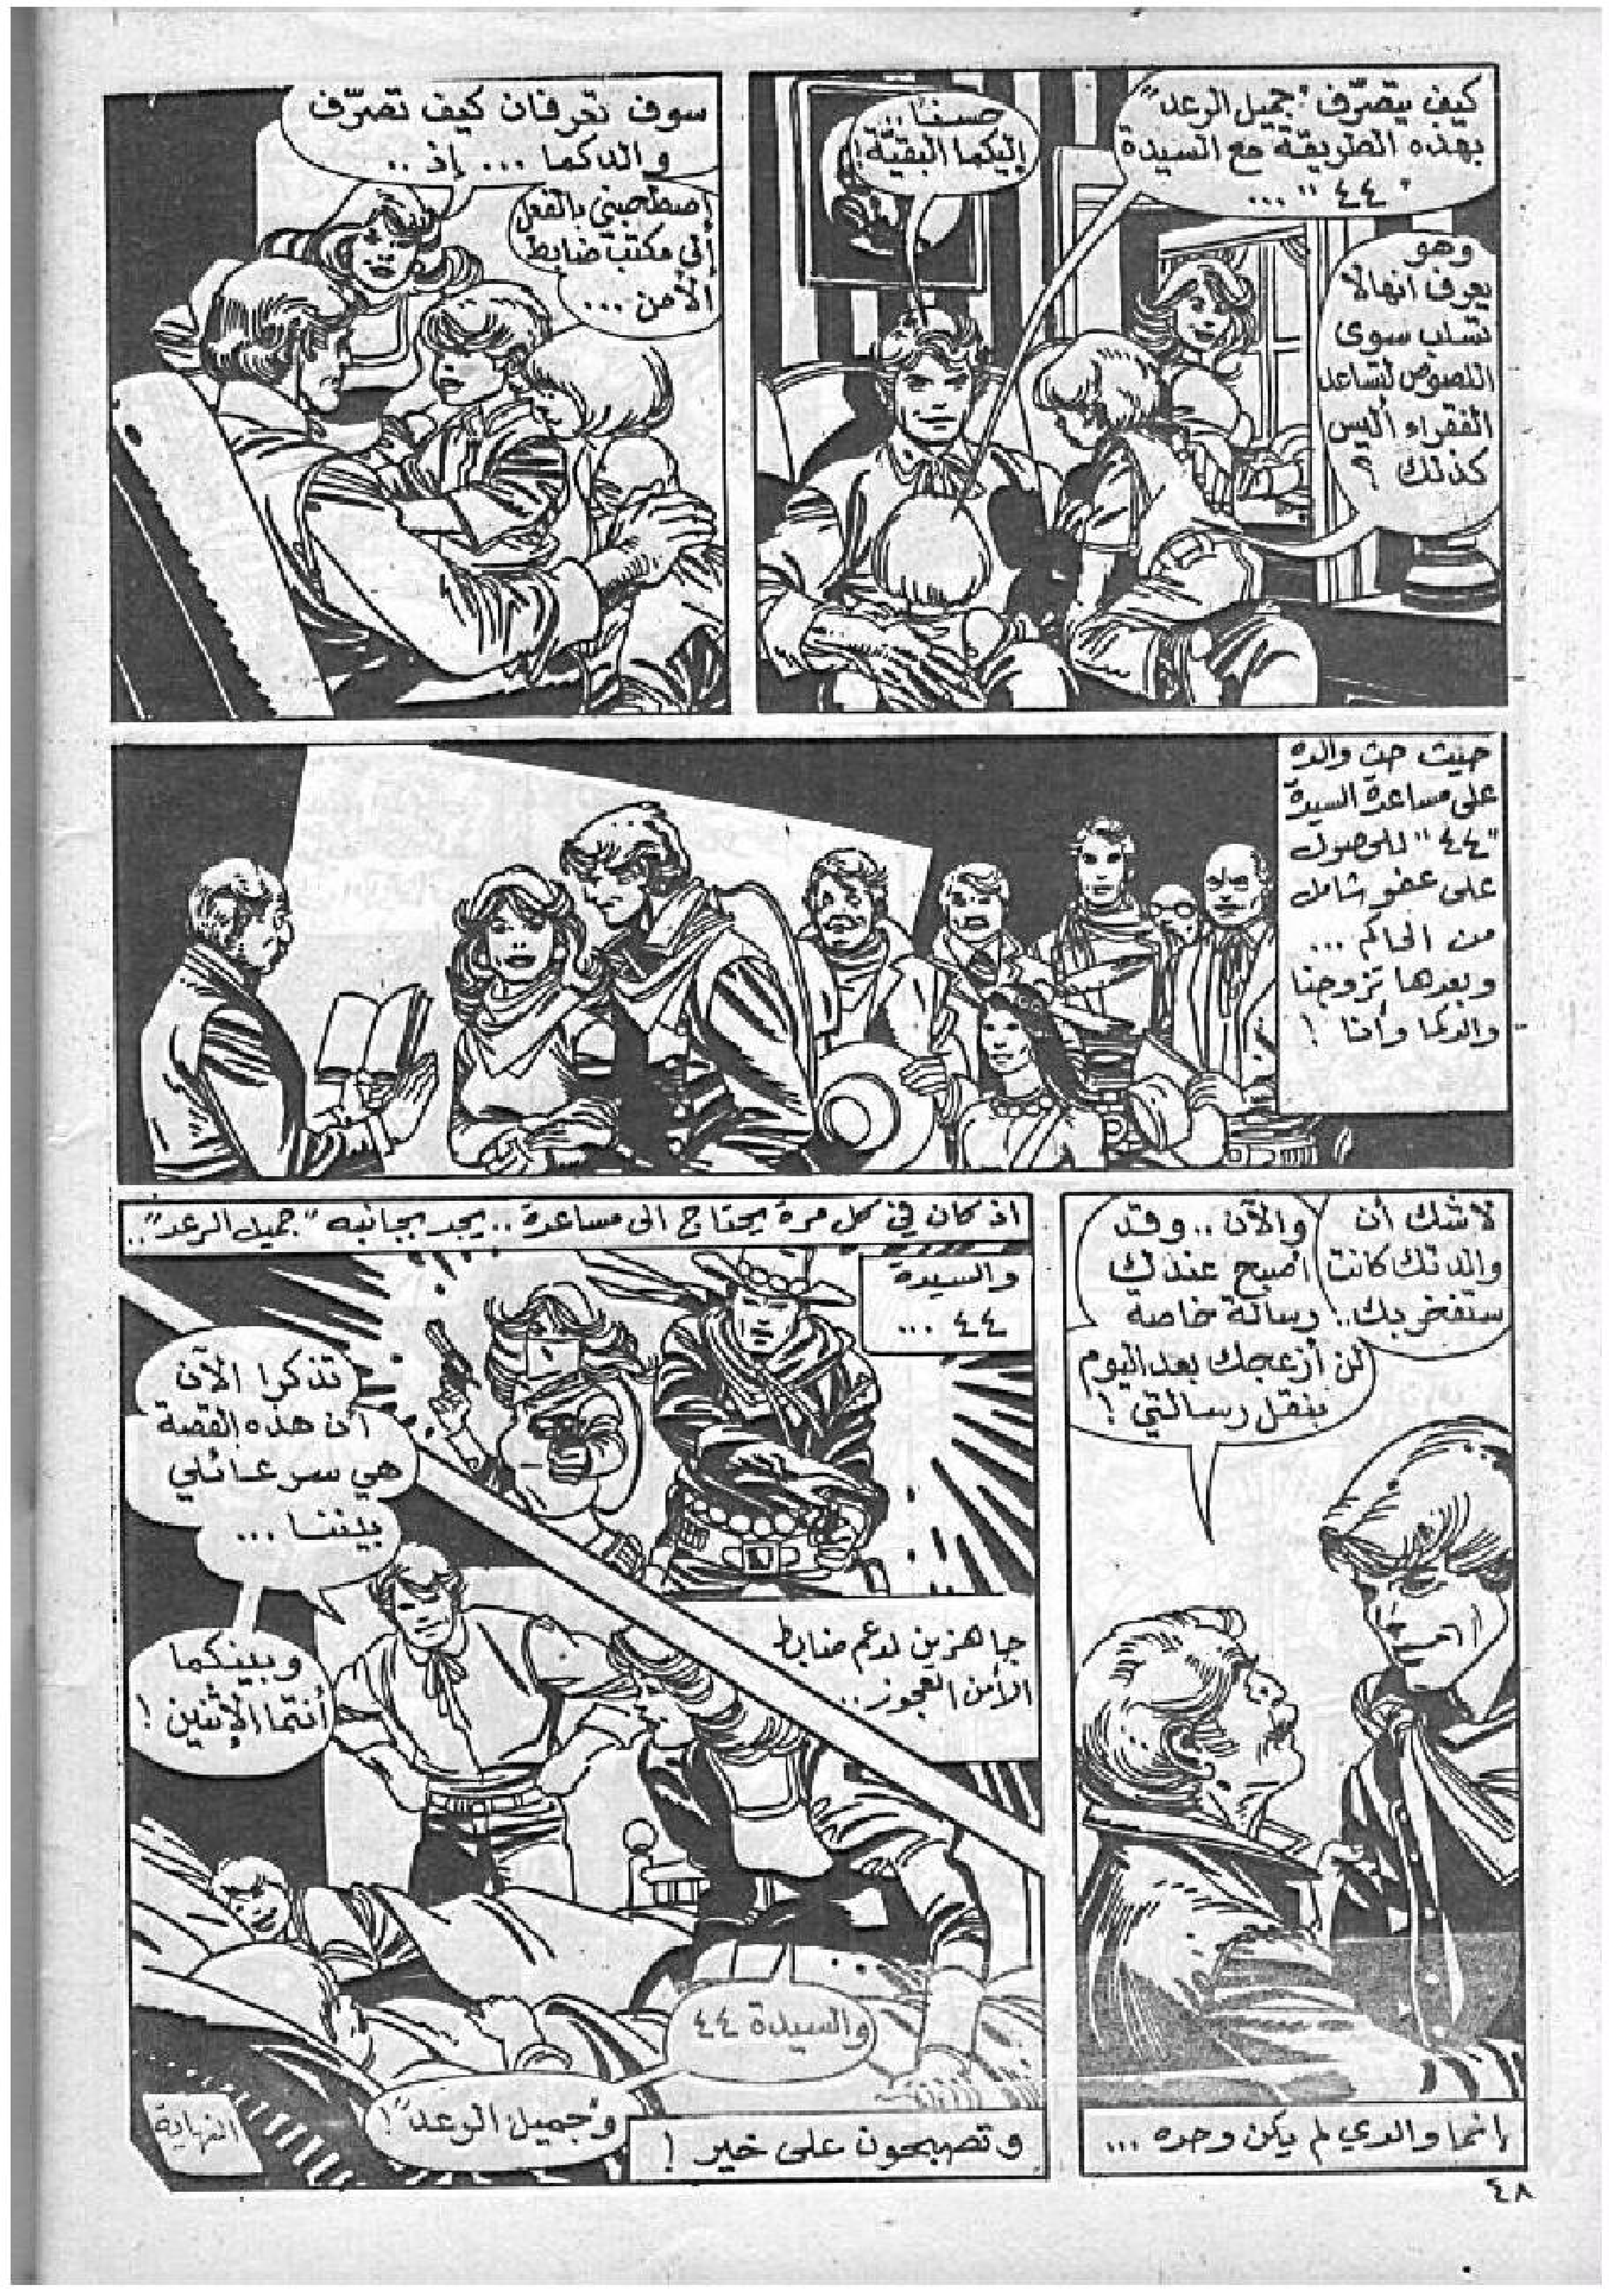 كيف يتصرّف "جميل الرعد"
بهذه الطريقة مع السيدة
"٤٤" ...
وهو
يعرف انها لا
تسلب سوى
اللصوص لتساعد
الفقراء أليس
كذلك ؟
حسنًا ...
إليكما البقيّة !
سوف تعرفان كيف تصرّف
والدكما ... إذ ..
إصطحبني بالفعل
إلى مكتب ضابط
الأمن ...
حيث حث والده
على مساعدة السيدة
"٤٤" للحصول
على عفو شامل
من الحاكم ...
وبعدها تزوجنا
والدكما وأنا !
لا شك أن
والدتك كانت
ستفخر بك ..
والآن .. وقد
أصبح عندك
رسالة خاصة
لن أزعجك بعد اليوم
بنقل رسالتي !
إنما والدي لم يكن وحده ...
اذ كان في كل مرة يحتاج الى مساعدة .. يجد بجانبه "جميل الرعد" ..
والسيدة
٤٤ ...
جاهزين لدعم ضابط
الأمن العجوز ..
تذكرا الآن
أن هذه القصة
هي سر عائلي
بيننا ...
وبينكما
أنتما الإثنين !
والسيدة ٤٤
و"جميل الرعد" !
وتصبحون على خير !
النهاية
٤٨